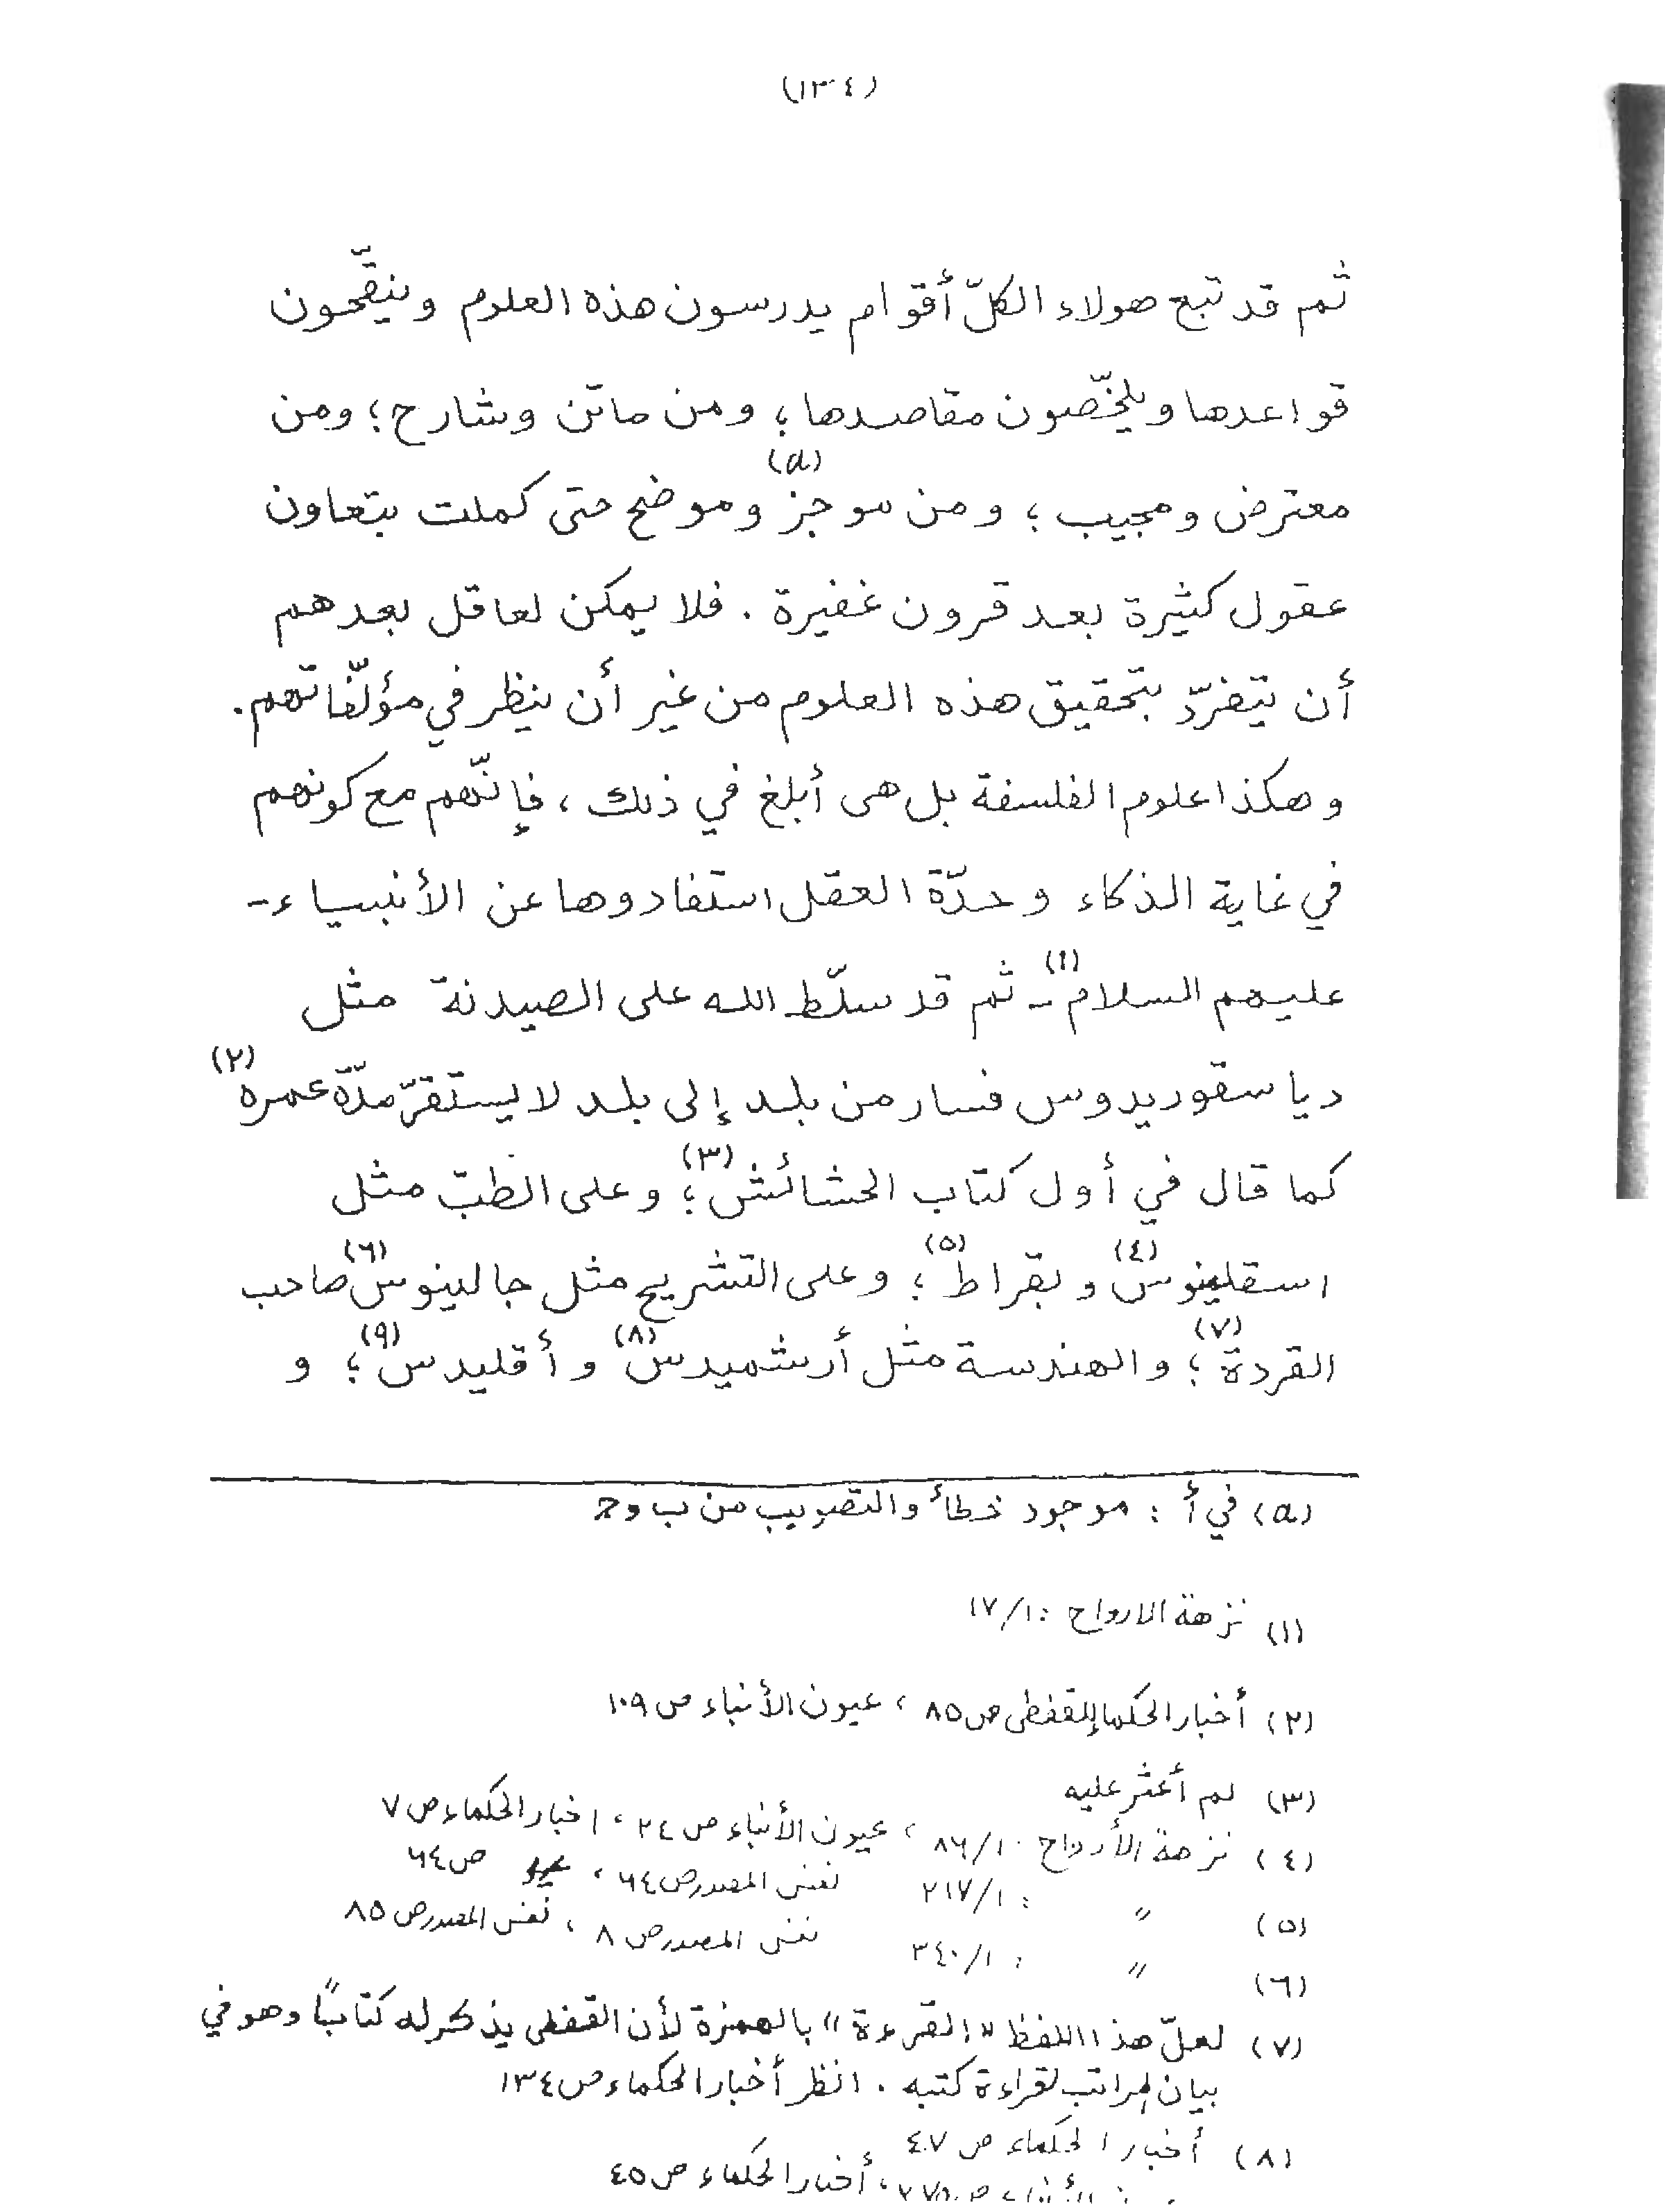 (١٣٤)
ثم قد تبع هولاء الكلّ أقوام يدرسون هذه العلوم وينقّحون
قواعدها ويلخّصون مقاصدها ؛ ومن ماتن وشارح ؛ ومن
معترض ومجيب ؛ ومن موجز (a) وموضح حتى كملت بتعاون
عقول كثيرة بعد قرون غفيرة . فلا يمكن لعاقل بعدهم
أن يتفرّد بتحقيق هذه العلوم من غير أن ينظر في مؤلّفاتهم .
وهكذا علوم الفلسفة بل هى أبلغ في ذلك ، فإنّهم مع كونهم
في غاية الذكاء وحدّة العقل استفادوها عن الأنبياء -
عليهم السلام (١) - ثم قد سلّط الله على الصيدنة مثل
دياسقوريدوس فسار من بلد إلى بلد لا يستقرّ مدّة عمره (٢)
كما قال في أول كتاب الحشائش (٣) ؛ وعلى الطبّ مثل
اسقلينوس (٤) وبقراط (٥) ؛ وعلى التشريح مثل جالينوس (٦) صاحب
القردة (٧) ؛ والهندسة مثل أرشميدس (٨) وأقليدس (٩) ؛ و
(a) في أ : موجود خطأ والتصويب من ب وج
(١) نزهة الارواح : ١/ ١٧
(٢) أخبار الحكما للقفطى ص ٨٥ ، عيون الأنباء ص ١٠٩
(٣) لم أعثر عليه
(٤) نزهة الأرواح ١/ ٨٦ ، عيون الأنباء ص ٢٤ ، اخبار الحكماء ص ٧
(٥) " : ١/ ٢١٧ نفس المصدر ص ٦٤ ، ص ٦٤
(٦) " : ١/ ٣٤٠ نفس المصدر ص ٨ ، نفس المصدر ص ٨٥
(٧) لعلّ هذا اللفظ "القرءة" بالهمزة لأن القفطى يذكر له كتاباً وهو في
بيان المراتب لقراءة كتبه . انظر أخبار الحكماء ص ١٣٤
(٨) أخبار الحكماء ص ٤٧
، أخبار الحكماء ص ٤٥